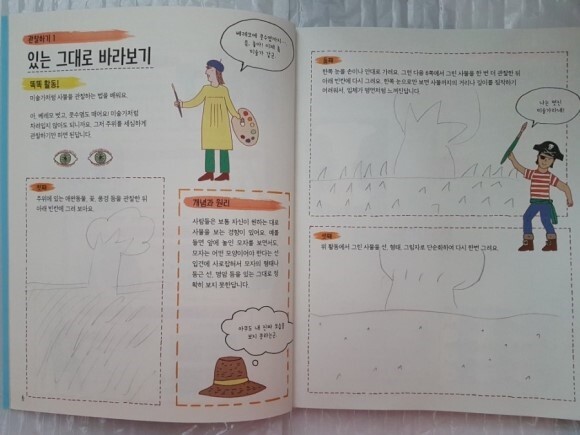 관찰하기 1
있는 그대로 바라보기
똑똑 활동!
미술가처럼 사물을 관찰하는 법을 배워요.
자, 베레모 벗고, 콧수염도 떼어요! 미술가처럼
차려입지 않아도 되니까요. 그저 주위를 세심하게
관찰하기만 하면 된답니다.
첫째
주위에 있는 애완동물, 꽃, 풍경 등을 관찰한 뒤
아래 빈칸에 그려 보아요.
개념과 원리
사람들은 보통 자신이 원하는 대로
사물을 보는 경향이 있어요. 예를
들면 앞에 놓인 모자를 보면서도
모자는 어떤 모양이어야 한다는 선
입견에 사로잡혀서 모자의 형태나
둥근 선, 명암 등을 있는 그대로 정
확히 보지 못한답니다.
아무도 내 진짜 모습을
보지 못하는군.
둘째
한쪽 눈을 손이나 안대로 가려요. 그런 다음 8쪽에서 그린 사물을 한 번 더 관찰한 뒤
아래 빈칸에 다시 그려요. 한쪽 눈으로만 보면 사물까지의 거리나 깊이를 짐작하기
어려워서, 입체가 평면처럼 느껴진답니다.
나는 멋진
미술가라네!
셋째
위 활동에서 그린 사물을 선, 형태, 그림자로 단순화하여 다시 한번 그려요.